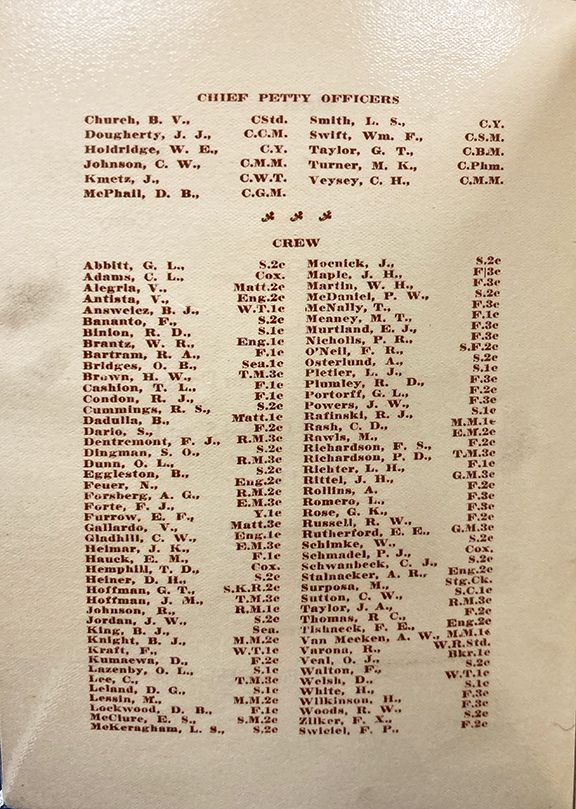 CHIEF PETTY OFFICERS
Church, B. V., CStd.
Dougherty, J. J., C.C.M.
Holdridge, W. E., C.Y.
Johnson, C. W., C.M.M.
Kmetz, J., C.W.T.
McPhail, D. B., C.G.M.
Smith, L. S., C.Y.
Swift, Wm. F., C.S.M.
Taylor, G. T., C.B.M.
Turner, M. K., C.Phm.
Veysey, C. H., C.M.M.
CREW
Abbitt, G. L., S.2c
Adams, C. L., Cox.
Alegria, V., Matt.2c
Antista, V., Eng.2c
Answelez, B. J., W.T.1c
Bananto, F., S.2c
Binion, R. D., S.1c
Brantz, W. R., Eng.1c
Bartram, R. A., F.1c
Bridges, O. B., Sea.1c
Brown, H. W., T.M.3c
Cashion, T. L., F.1c
Condon, R. J., F.1c
Cummings, R. S., S.2c
Dadulla, B., Matt.1c
Dario, S., F.2c
Dentremont, F. J., R.M.3c
Dingman, S. O., S.2c
Dunn, O. L., R.M.3c
Eggleston, B., S.2c
Feuer, N., Eng.2c
Forsberg, A. G., R.M.2c
Forte, F. J., E.M.3c
Furrow, E. F., Y.1c
Gallardo, V., Matt.3c
Gladhill, C. W., Eng.1c
Heimar, J. K., E.M.3c
Hauck, E. M., F.1c
Hemphill, T. D., Cox.
Heiner, D. H., S.2c
Hoffman, G. T., S.K.R.2c
Hoffman, J. M., T.M.3c
Johnson, R., R.M.1c
Jordan, J. W., S.2c
King, B. J., Sea.
Knight, B. J., M.M.2c
Kraft, F., W.T.1c
Kumaewa, D., F.2c
Lazenby, O. L., S.1c
Lee, C., T.M.3c
Leland, D. G., S.1c
Lessin, M., M.M.2c
Lockwood, D. B., F.1c
McClure, E. S., S.M.2c
McKeragham, L. S., S.2c
Mocnick, J., S.2c
Maple, J. H., F|3c
Martin, W. H., F.3c
McDaniel, P. W., S.2c
McNally, T., F.3c
Meaney, M. T., F.1c
Murtland, E. J., F.3c
Nicholls, P. R., F.3c
O'Neil, F. R., S.F.2c
Osterlund, A., S.2c
Pletier, L. J., S.1c
Plumley, R. D., F.3c
Portorff, G. L., F.2c
Powers, J. W., F.3c
Rafinski, R. J., S.1c
Rash, C. D., M.M.1c
Rawls, M., E.M.2c
Richardson, F. S., F.2c
Richardson, P. D., T.M.3c
Richter, L. H., F.1c
Rittel, J. H., G.M.3c
Rollins, A. F.2c
Romero, L., F.3c
Rose, G. K., F.3c
Russell, R. W., F.2c
Rutherford, E. E., G.M.3c
Schimke, W., S.2c
Schmadel, P. J., Cox.
Schwanbeck, C. J., S.2c
Stalnacker, A. R., Eng.2c
Surposa, M., Stg.Ck.
Sutton, C. W., S.C.1c
Taylor, J. A., R.M.3c
Thomas, R C., F.2c
Tishneck, F. E., Eng.2c
Van Meeken, A. W., M.M.1c
Varona, R., W.R.Std.
Veal, O. J., Bkr.1c
Walton, F., S.2c
Welsh, D., W.T.1c
White, H., S.1c
Wilkinson, H., F.3c
Woods, R. W., F.3c
Zilker, F. X., S.2c
Swiciel, F. P., F.2c